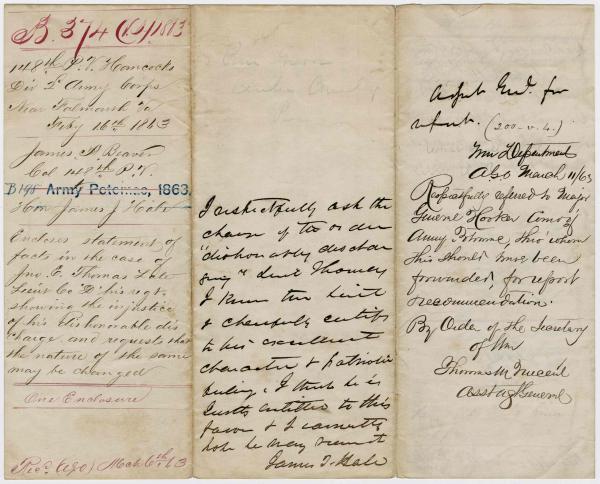 B. 374 (D.S.) 1863
148th P.V. Hancocks
Div 2d Army Corps
Near Falmouth Va
Feby 16th 1863
James A. Beaver
Col 148th P.V.
Army Potomac, 1863.
Hon James T Hale
Encloses statement of
facts in the case of
Jno. E. Thomas late
Lieut Co "D" his regt.
showing the injustice
of his dishonorable dis
charge and requests that
the nature of the same
may be changed
One Enclosure
Rec'd (AGO) Mch 6th 63
I respectfully ask the
change of the order
"dishonorably dischar
ging" Lieut Thomas
I know the Lieut
& cheerfully certify
to his excellent
character & patriotic
feeling, I think he is
Justly entitled to this
favor & I earnestly
hope he may receive it
James T. Hale
for
report. (200-v.4.)
War Department
AGO March 11/63
Respectfully referred to Major
General Hooker Com'g
Army Potomac, thro' whom
this should have been
forwarded, for report
recommendation.
By Order of the Secretary
of War
Thomas M Vincent
Asst Adj General